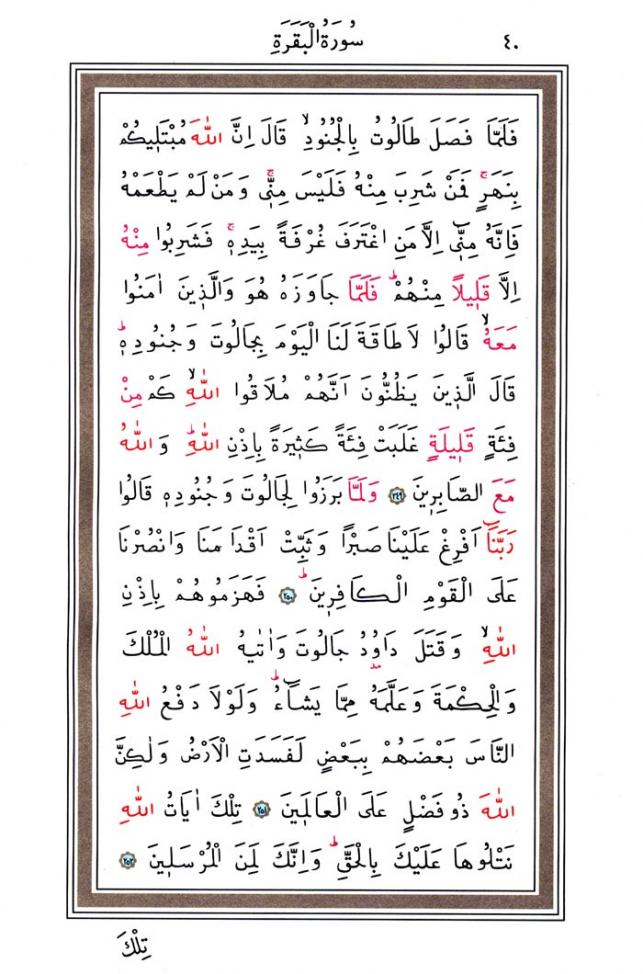 ٤٠
سُورَةُ الْبَقَرَةِ
فَلَمَّا فَصَلَ طَالُوتُ بِالْجُنُودِۙ قَالَ اِنَّ اللّٰهَ مُبْتَلِيكُمْ
بِنَهَرٍۚ فَمَنْ شَرِبَ مِنْهُ فَلَيْسَ مِنّٖيۚ وَمَنْ لَمْ يَطْعَمْهُ
فَاِنَّهُ مِنّٖٓي اِلَّا مَنِ اغْتَرَفَ غُرْفَةً بِيَدِهٖۚ فَشَرِبُوا مِنْهُ
اِلَّا قَلٖيلاً مِنْهُمْؕ فَلَمَّا جَاوَزَهُ هُوَ وَالَّذٖينَ اٰمَنُوا
مَعَهُۙ قَالُوا لَا طَاقَةَ لَنَا الْيَوْمَ بِجَالُوتَ وَجُنُودِهٖؕ
قَالَ الَّذٖينَ يَظُنُّونَ اَنَّهُمْ مُلَاقُوا اللّٰهِۙ كَمْ مِنْ
فِئَةٍ قَلٖيلَةٍ غَلَبَتْ فِئَةً كَثٖيرَةً بِاِذْنِ اللّٰهِؕ وَاللّٰهُ
مَعَ الصَّابِرٖينَ ﴿٢٤٩﴾ وَلَمَّا بَرَزُوا لِجَالُوتَ وَجُنُودِهٖ قَالُوا
رَبَّنَٓا اَفْرِغْ عَلَيْنَا صَبْرًا وَثَبِّتْ اَقْدَامَنَا وَانْصُرْنَا
عَلَى الْقَوْمِ الْكَافِرٖينَؕ ﴿٢٥٠﴾ فَهَزَمُوهُمْ بِاِذْنِ
اللّٰهِۙ وَقَتَلَ دَاوُدُ جَالُوتَ وَاٰتٰيهُ اللّٰهُ الْمُلْكَ
وَالْحِكْمَةَ وَعَلَّمَهُ مِمَّا يَشَٓاءُؕ وَلَوْلَا دَفْعُ اللّٰهِ
النَّاسَ بَعْضَهُمْ بِبَعْضٍ لَفَسَدَتِ الْاَرْضُ وَلٰكِنَّ
اللّٰهَ ذُو فَضْلٍ عَلَى الْعَالَمٖينَ ﴿٢٥١﴾ تِلْكَ اٰيَاتُ اللّٰهِ
نَتْلُوهَا عَلَيْكَ بِالْحَقِّؕ وَاِنَّكَ لَمِنَ الْمُرْسَلٖينَ ﴿٢٥٢﴾
تِلْكَ